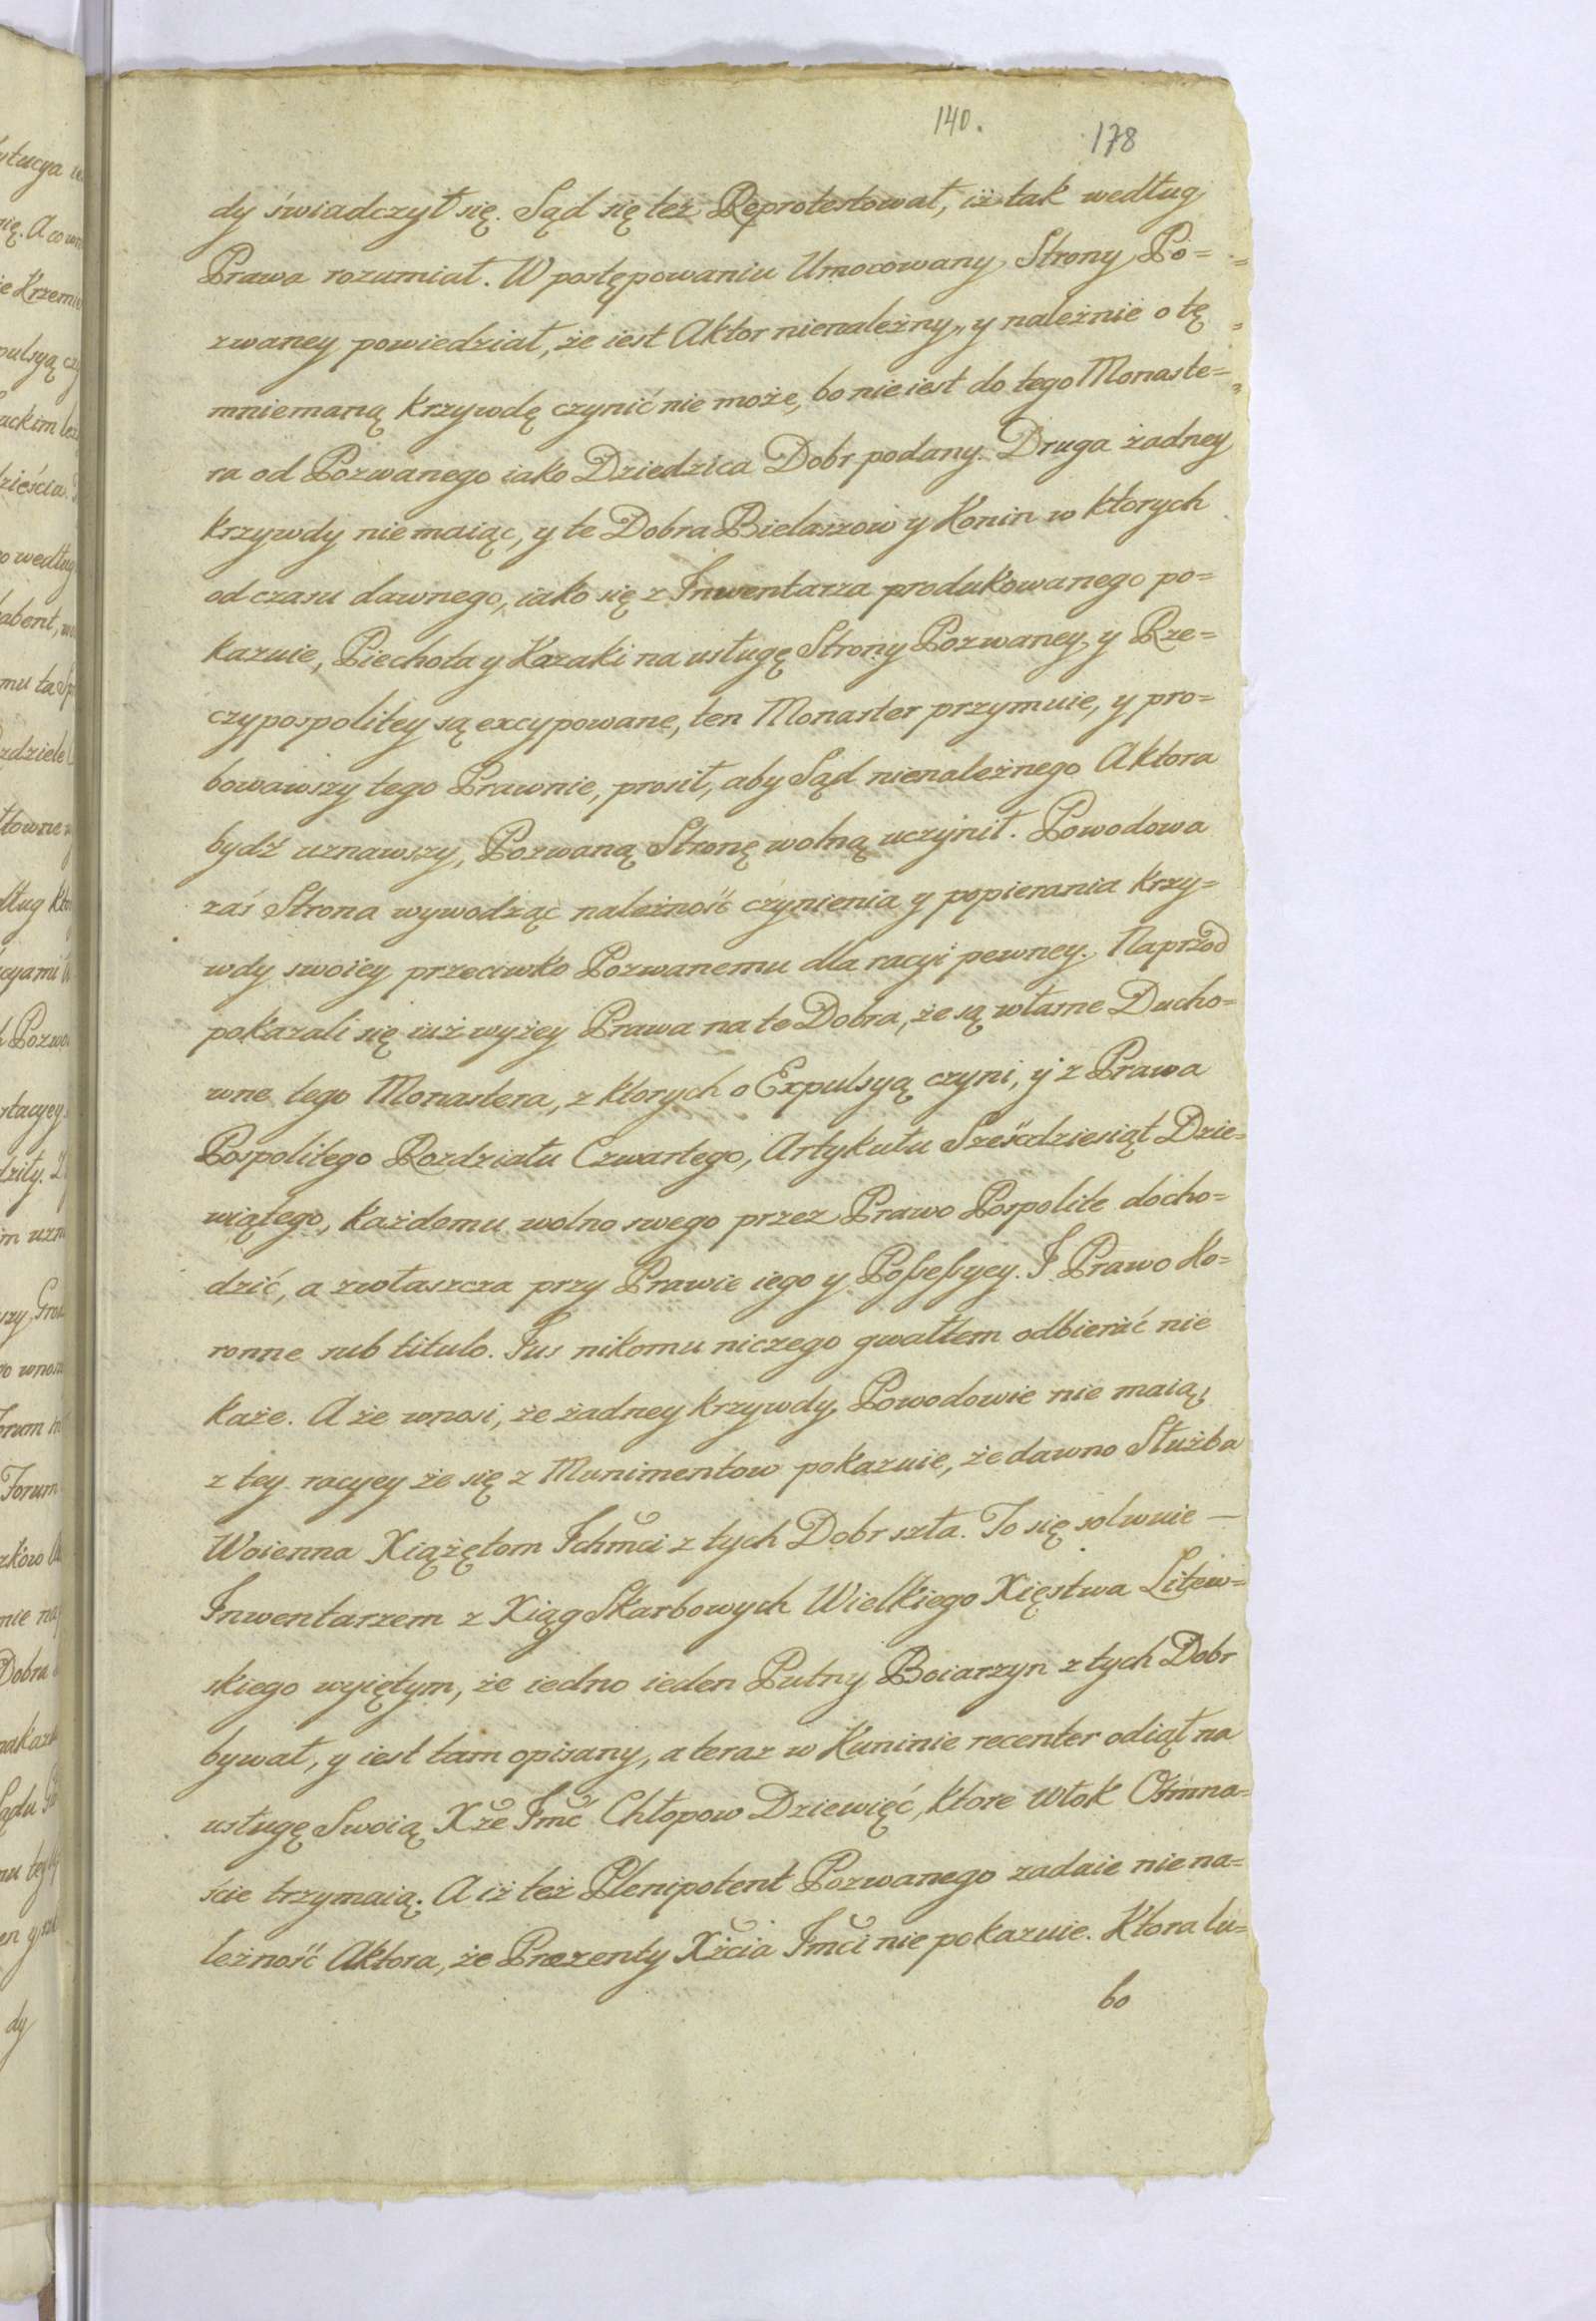 140.
178
dy świadczył się. Sąd się też Reprotestował, iż tak według
Prawa rozumiał. W postępowaniu Umocowany Strony Po=
zwaney powiedział, że iest Aktor nienależny, y należnie o tę
mniemaną krzywdę czynić nie może, bo nie iest do tego Monaste=
ra od Pozwanego iako Dziedzica Dobr podany. Druga żadney
krzywdy nie maiąc, y te Dobra Bielaszow y Konin w ktorych
od czasu dawnego, iako się z Inwentarza produkowanego po=
kazuie, Piechota y Kazaki na usługę Strony Pozwaney y Rze=
czypospolitey są excypowane, ten Monaster przymuie, y pro=
bowawszy tego Prawnie, prosił, aby Sąd nienależnego Aktora
bydź uznawszy, Pozwaną Stronę wolną uczynił. Powodowa
zaś Strona wywodząc należność czynienia y popierania krzy=
wdy swoiey przeciwko Pozwanemu dla racyi pewney. Naprzod
pokazali się iuż wyżey Prawa na te Dobra, że są własne Ducho=
wne tego Monastera, z ktorych o Expulsyą czyni, y z Prawa
Pospolitego Rozdziału Czwartego, Artykułu Sześćdziesiąt Dzie=
wiątego, każdemu wolno swego przez Prawo Pospolite docho=
dzić, a zwłaszcza przy Prawie iego y Possessyey. I Prawo Ko=
ronne sub titulo. Jus nikomu niczego gwałtem odbierać nie
każe. A że wnosi, że żadney krzywdy Powodowie nie maią,
z tey racyey że się z Munimentow pokazuie, że dawno Służba
Woienna Xiążętom Ichmci z tych Dobr szła. To się solwuie —
Inwentarzem z Xiąg Skarbowych Wielkiego Xięstwa Litew=
skiego wyiętym, że iedno ieden Putny Boiarzyn z tych Dobr
bywał, y iest tam opisany, a teraz w Kuninie recenter odiął na
usługę Swoią Xże Jmć Chłopow Dziewięć, ktore włok Ośmna=
ście trzymaią. A iż też Plenipotent Pozwanego zadaie niena=
leżność Aktora, że Prezenty Xżcia Jmci nie pokazuie. Ktora lu=
bo